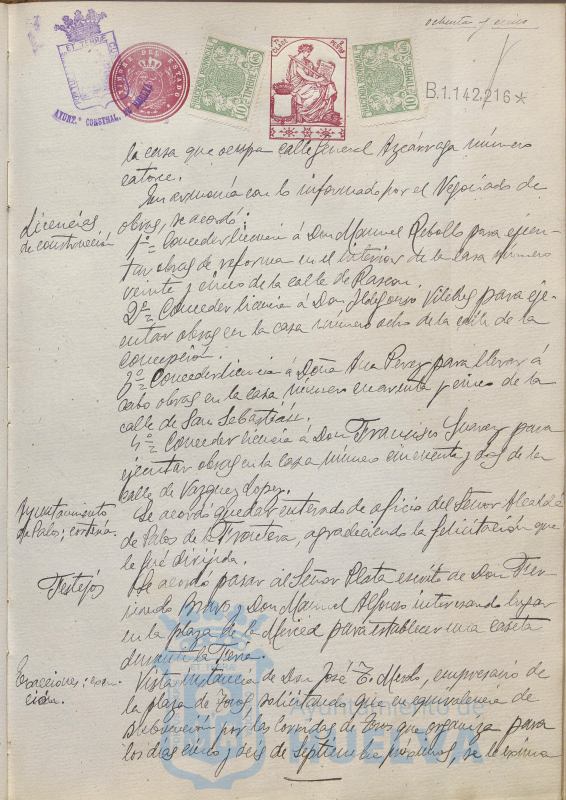 ochenta y cinco
AYUNT.º CONSTNAL. DE HUELVA
TIMBRE DEL ESTADO
7ª CLASE
1 PESETA
B.1.142.216*
la casa que ocupa calle General Azcárraga número
catorce.
En armonía con lo informado por el Negociado de
Licencias
de construcción
obras, se acordó:
1º = Conceder licencia á Don Manuel Rebollo para ejecu-
tar obras de reforma en el interior de la casa número
veinte y cinco de la calle de Rascon.
2º = Conceder licencia á Don Ildefonso Vilches para eje-
cutar obras en la casa número ocho de la calle de la
Concepción.
3º = Conceder licencia á Doña Ana Perez para llevar á
cabo obras en la casa número cuarenta y cinco de la
calle de San Sebastián.
4º = Conceder licencia á Don Francisco Suarez para
ejecutar obras en la casa número cincuenta y dos de la
calle de Vazquez Lopez.
Ayuntamiento
de Palos; cortesía.
Se acordó quedar enterado de oficio del Señor Alcalde
de Palos de la Frontera, agradeciendo la felicitación que
le fué dirijida.
Festejos
Se acordó pasar al Señor Plata escrito de Don
Bravo y Don Manuel Alfonso interesando lugar
en la plaza de la Merced para establecer una caseta
durante la Feria.
Vista instancia de Don José T. empresario de
la plaza de Toros, solicitando que en equivalencia de
subvención por las corridas de Toros que organiza para
los dias cinco y seis de Septiembre próximos, se le exima
Ayuntamiento de
HUELVA